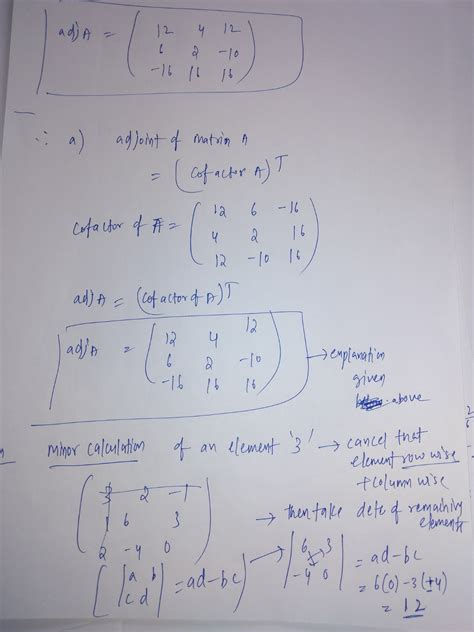 adj A = ( 12 4 12
6 2 -10
-16 16 16 )
∴ a) adjoint of matrix A
= (cofactor A)T
Cofactor of A = ( 12 6 -16
4 2 16
12 -10 16 )
adj A = (cofactor of A)T
adj A = ( 12 4 12
6 2 -10
-16 16 16 ) → explanation
given
above
Minor calculation of an element '3' → cancel that
element row wise
+ column wise
( 3 2 -1
1 6 3
2 -4 0 )
→ then take dete of remaining
elements
( | a b
c d | = ad-bc ) → | 6 3
-4 0 | = ad-bc
= 6(0)-3(-4)
= 12